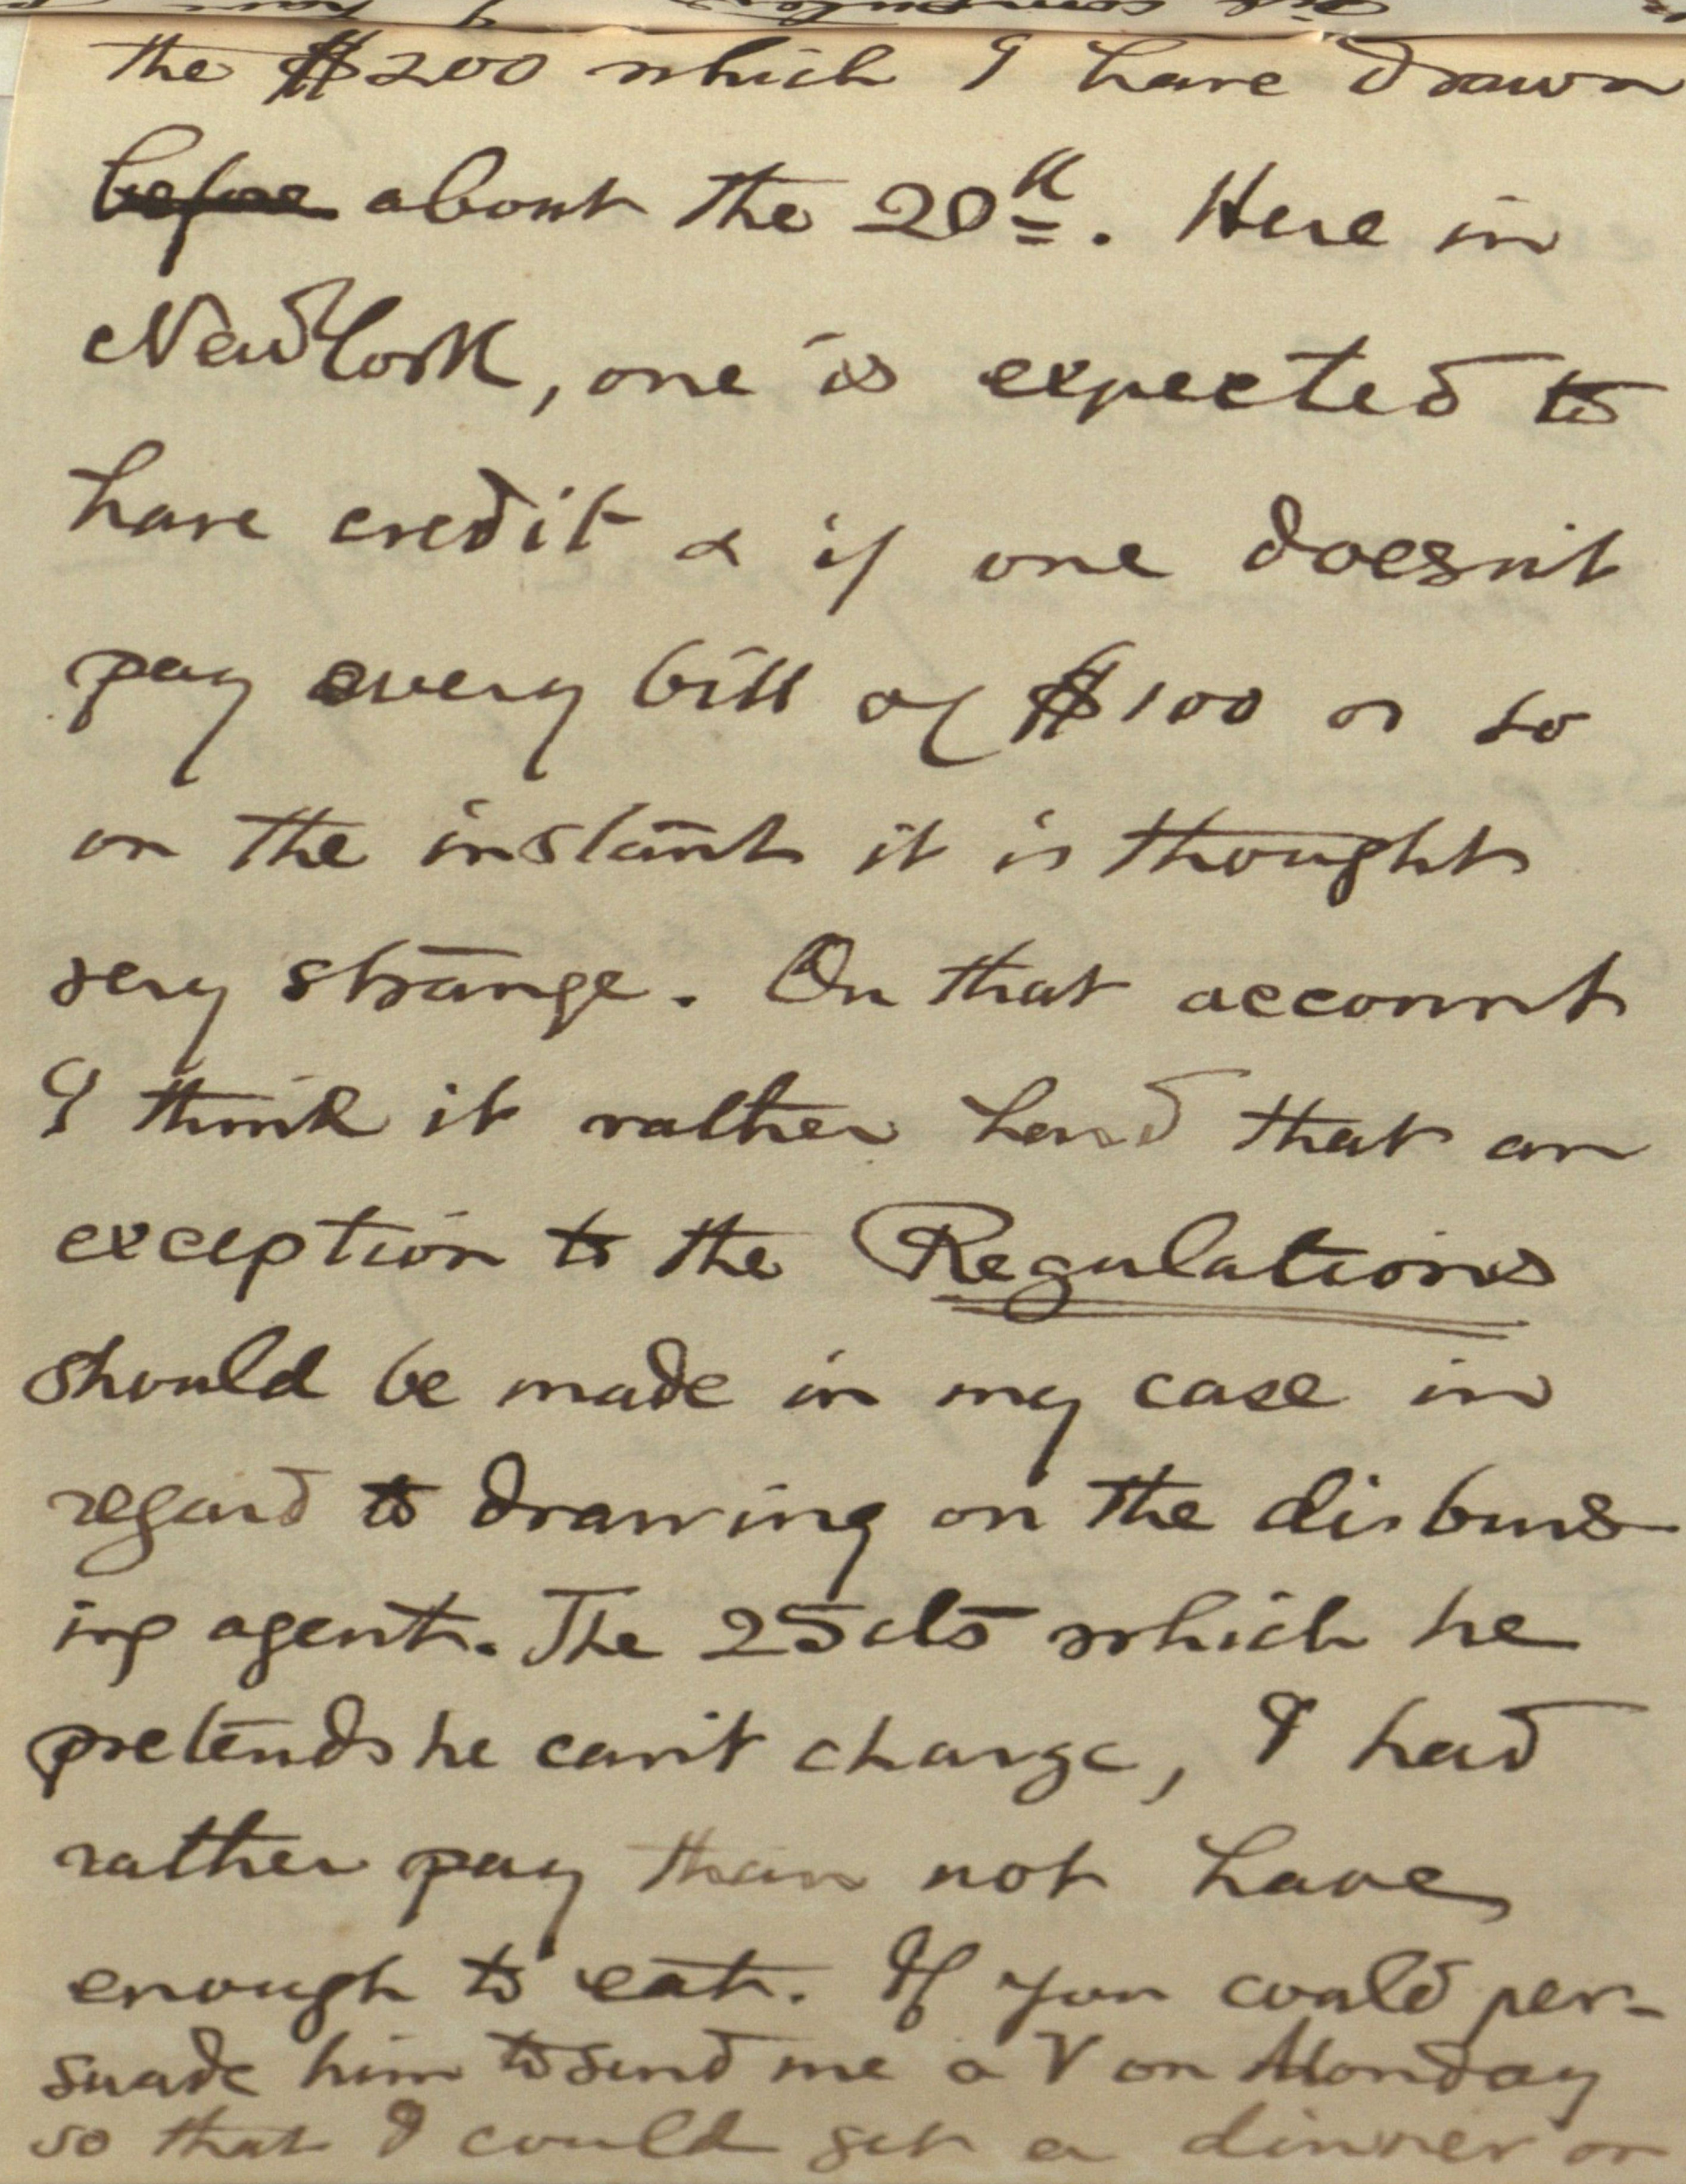 the $200 which I have drawn
before about the 20th. Here in
New York, one is expected to
have credit & if one doesn't
pay every bill of $100 or so
on the instant it is thought
very strange. On that account
I think it rather hard that an
exception to the Regulations
should be made in my case in
regard to drawing on the disburs-
ing agent. The 25 cts which he
pretends he can't charge, I had
rather pay than not have
enough to eat. If you could per-
suade him to send me a V on Monday
so that I could get a dinner or